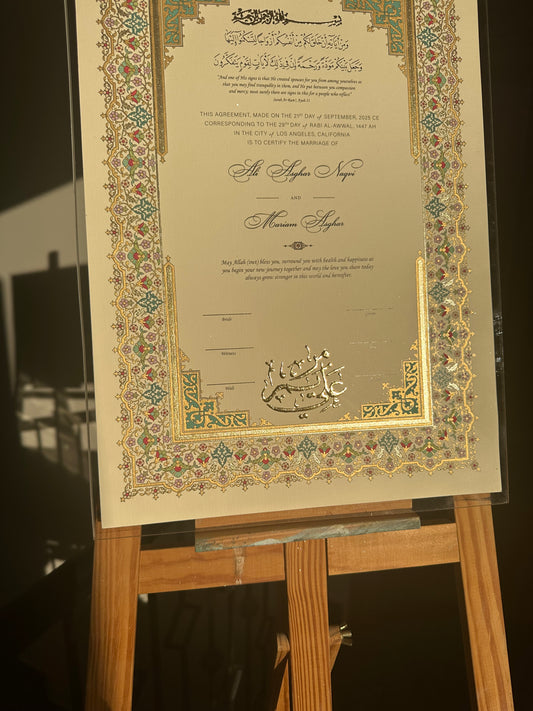 بسم الله الرحمن الرحيم
وَمِنْ آيَاتِهِ أَنْ خَلَقَ لَكُمْ مِنْ أَنْفُسِكُمْ أَزْوَاجًا لِتَسْكُنُوا إِلَيْهَا
وَجَعَلَ بَيْنَكُمْ مَوَدَّةً وَرَحْمَةً إِنَّ فِي ذَٰلِكَ لَآيَاتٍ لِقَوْمٍ يَتَفَكَّرُونَ
"And one of His signs is that He created spouses for you from among yourselves so
that you may find tranquility in them, and He put between you compassion
and mercy; most surely there are signs in this for a people who reflect"
THIS AGREEMENT, MADE ON THE 21ST DAY of SEPTEMBER, 2025 CE
CORRESPONDING TO THE 29TH DAY of RABI AL-AWWAL, 1447 AH
IN THE CITY of LOS ANGELES, CALIFORNIA
IS TO CERTIFY THE MARRIAGE OF
Ali Asghar Naqvi
AND
Mariam Asghar
May Allah (swt) bless you, surround you with health and happiness as
you begin your new journey together and may the love you share today
always grow stronger in this world and hereafter.
Bride
Groom
Witness
Wali